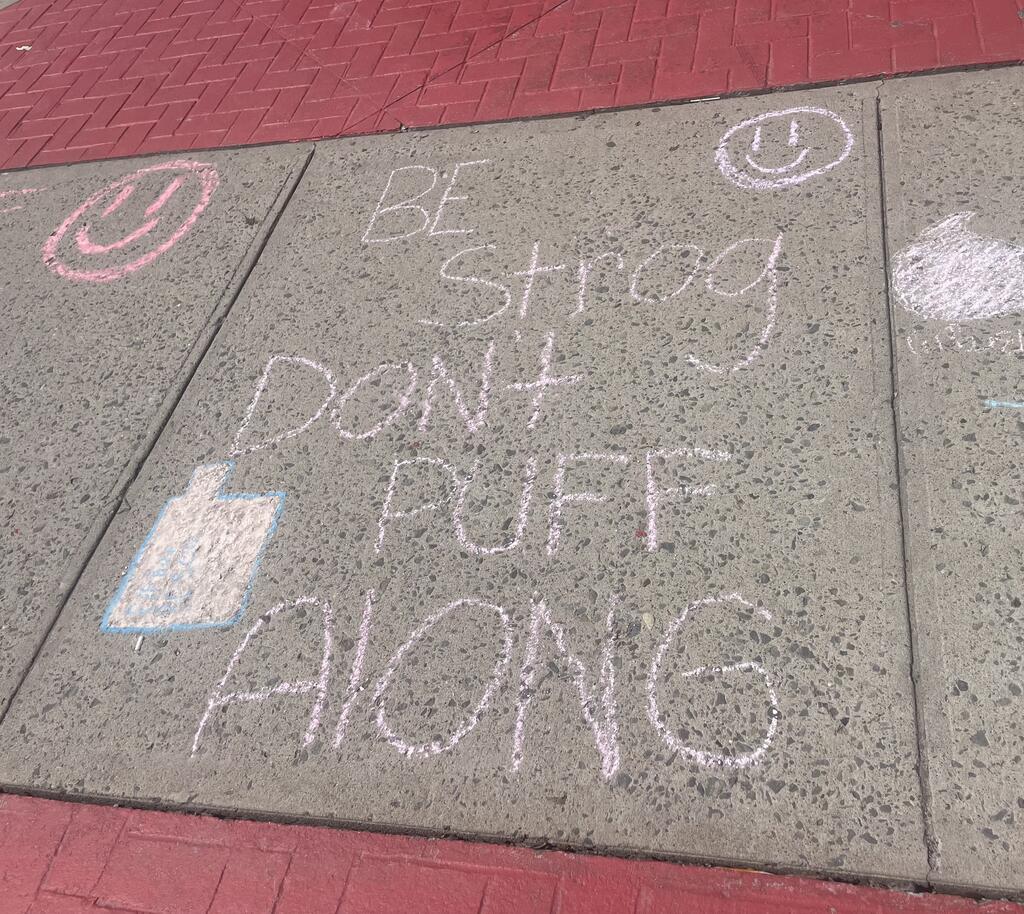 BE
Strog
DON't
PUFF
AlONG